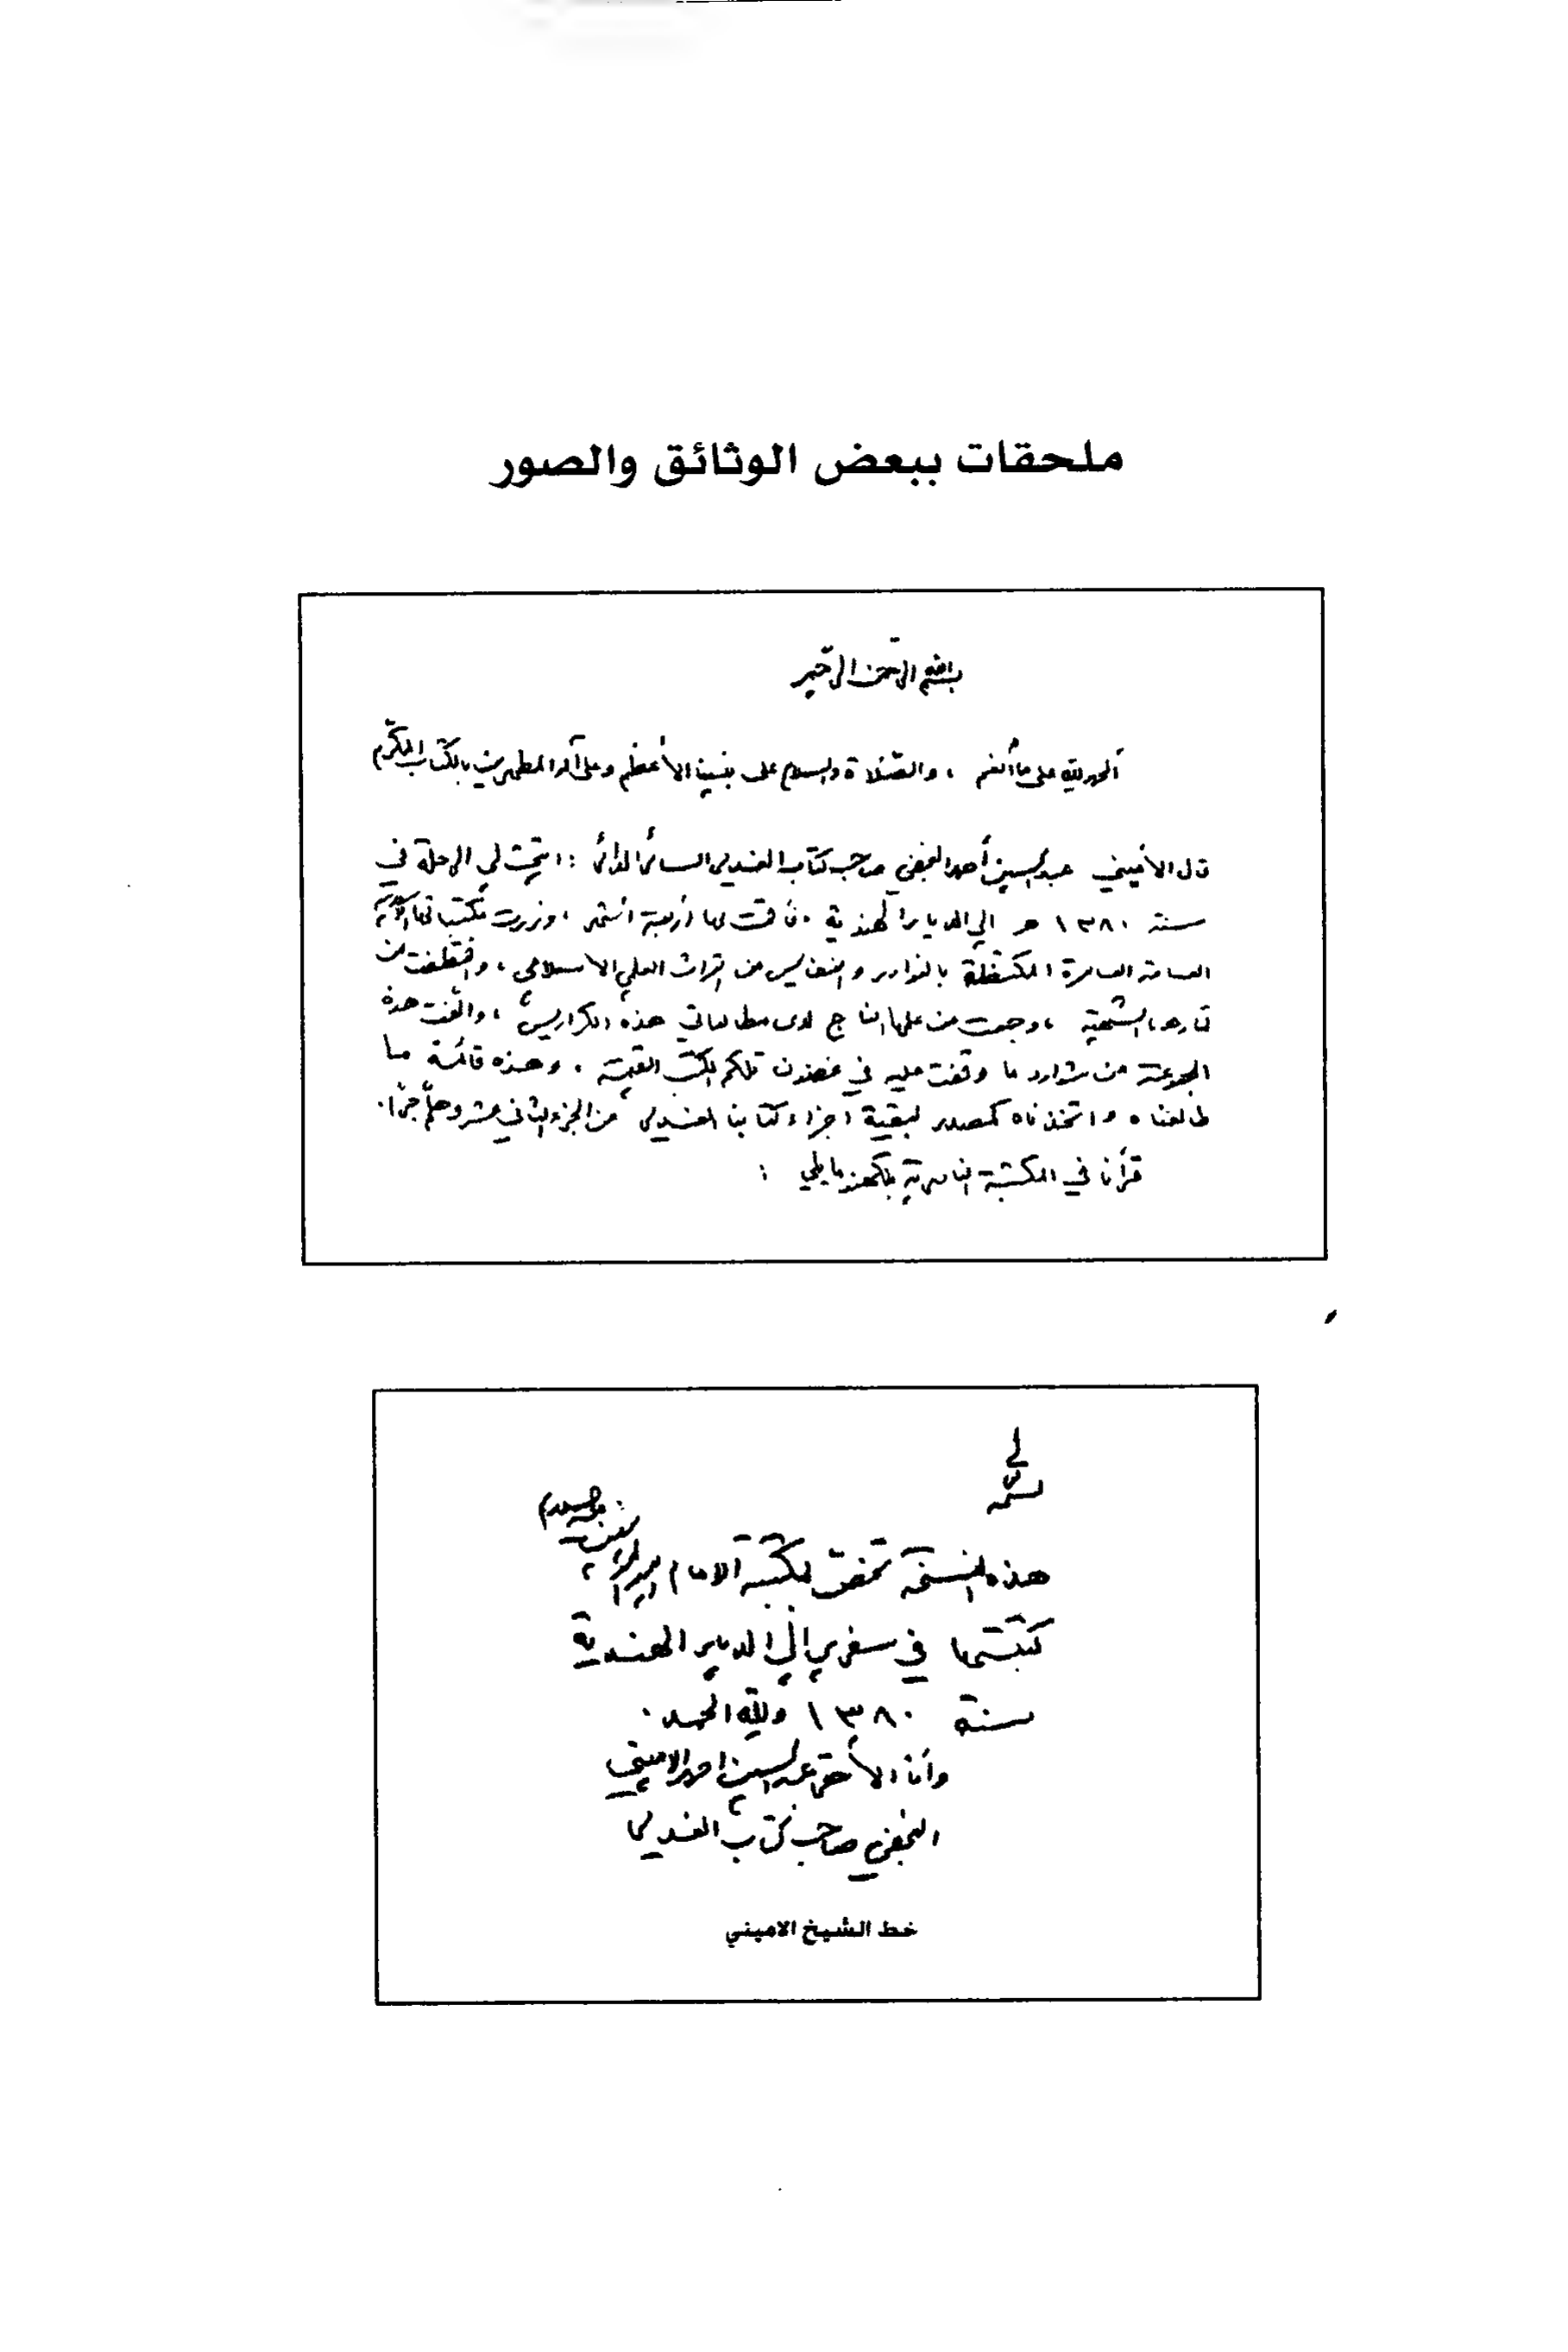 ملحقات ببعض الوثائق والصور
بسم الله الرحمن الرحيم
الحمد لله على ما أنعم ، والصّلاة والسلام على نبينا الأعظم وعلى آله المطهرين بالكتاب المكرّم
قال الأميني عبدالحسين أحمد النجفي صاحب كتاب الغدير السائر الدائر : اتيحت لي الرحلة في
سنة ١٣٨٠ هـ الى الديار الهندية . فأقمت بها أربعة أشهر ، وزرت مكتباتها
العامة العامرة المكتظة بالنوادر والنفائس من تراث العلمي الاسلامي ، واقتطفت من
ثمارها الشهيّة ، وجمعت من علمها الناجع لدى مطالعاتي هذه الكراريس ، والّفت هذه
المجموعة من شوارد ما وقفت عليه في غضون تلكم الكتب القيّمة . وهذه قائمة ما
طالعناه واتخذناه كمصدر لبقية اجزاء كتابنا الغدير من الجزء الثاني عشر وهلمّ جرّا .
قرأنا في المكتبة الناصرية بلكهنو ما يلي :
هذه النسخة تخصّ مكتبة الامام امير المؤمنين
كتبتها في سفري الى الديار الهندية
سنة ١٣٨٠ ولله الحمد .
وأنا الأحقر عبدالحسين احمد الاميني
النجفي صاحب كتاب الغدير
خط الشيخ الاميني